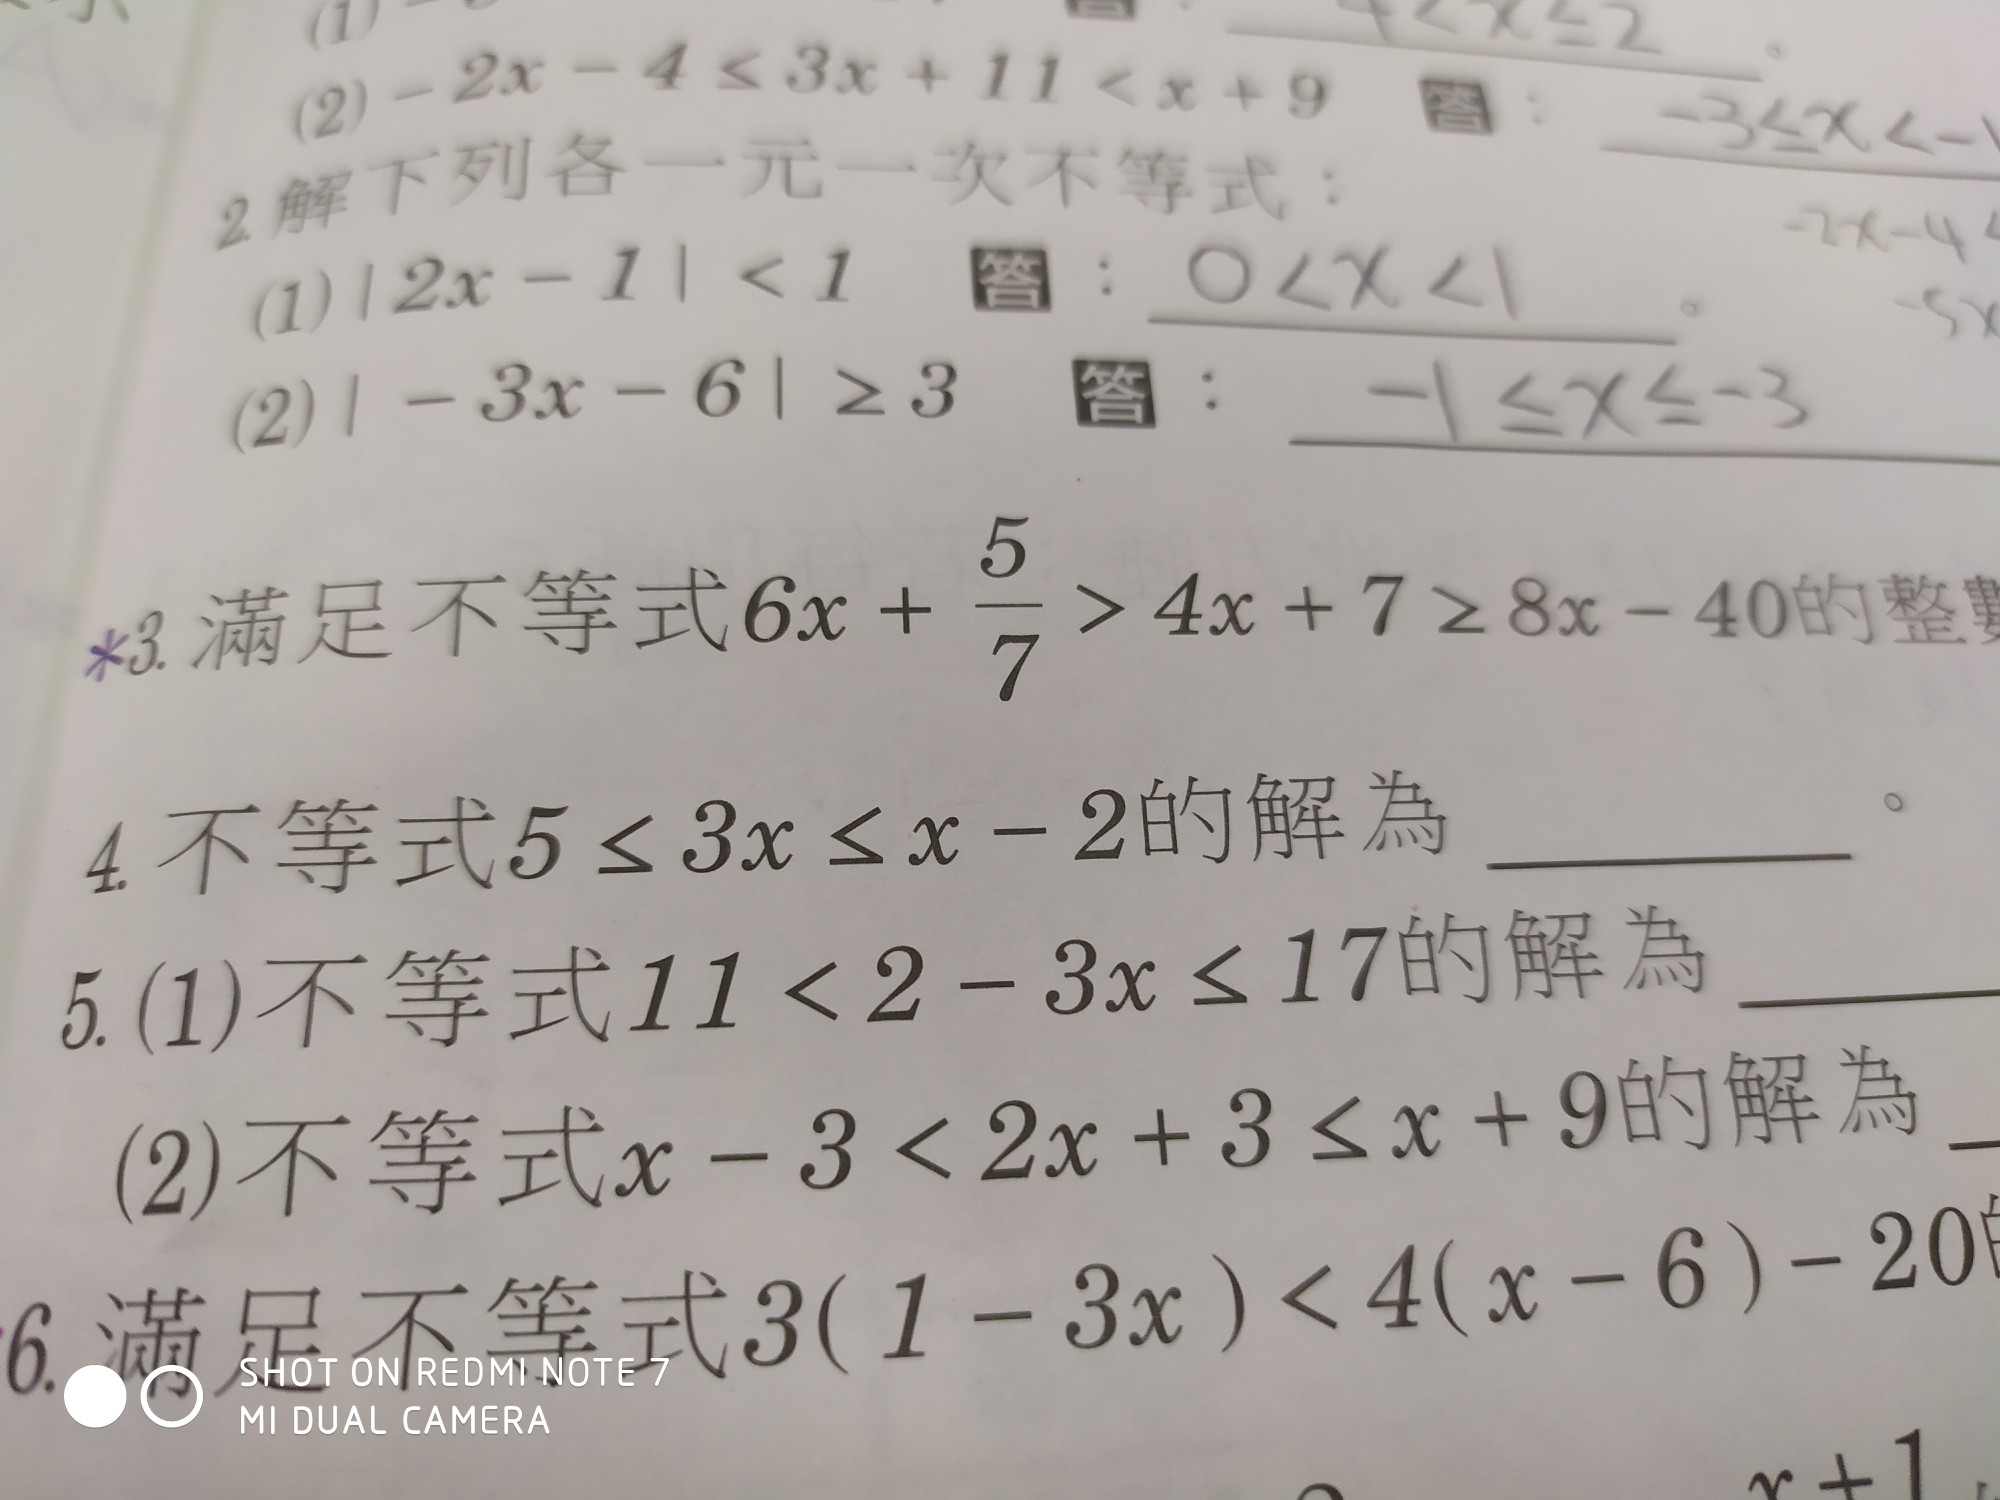 (1)
4<x≤2 。
(2) -2x-4≤3x+11<x+9 答: -3≤x<-1
2.解下列各一元一次不等式:
-2x-4≤
(1)|2x-1|<1 答: 0<x<1 。
-5x
(2)|-3x-6|≥3 答: -1≤x≤-3
*3.滿足不等式6x+5/7>4x+7≥8x-40的整數
4.不等式5≤3x≤x-2的解為______。
5.(1)不等式11<2-3x≤17的解為______
(2)不等式x-3<2x+3≤x+9的解為
6.滿足不等式3(1-3x)<4(x-6)-20的
SHOT ON REDMI NOTE 7
MI DUAL CAMERA
x+1